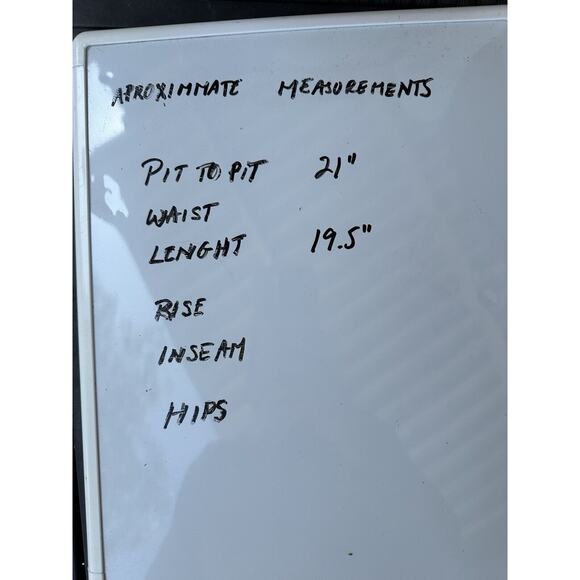 APROXIMMATE MEASUREMENTS
PIT TO PIT 21"
WAIST
LENGHT 19.5"
RISE
INSEAM
HIPS